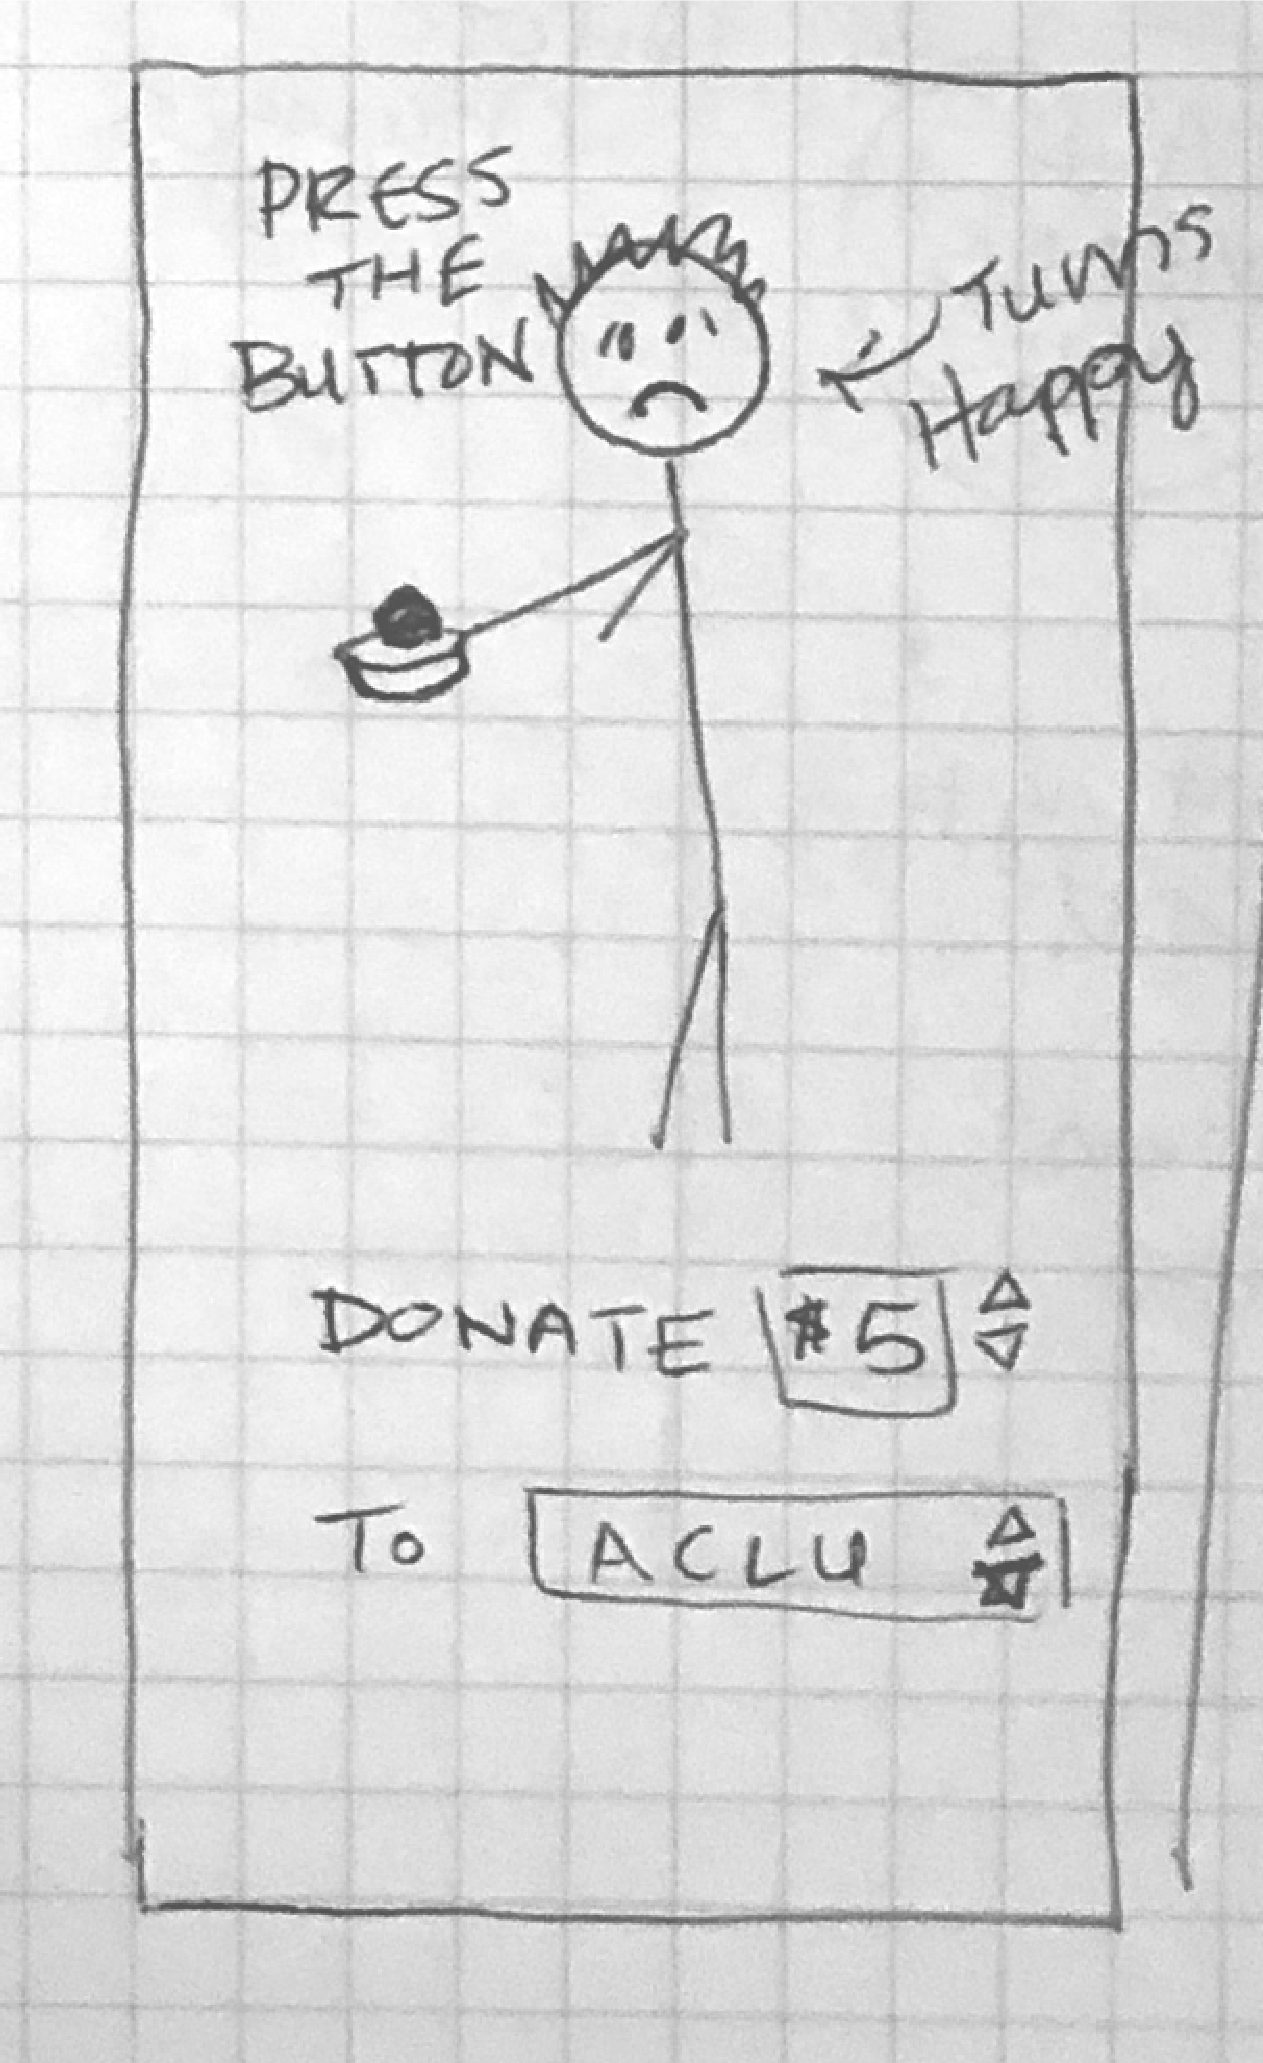 PRESS
THE
BUTTON
Turns
Happy
DONATE $5
To ACLU